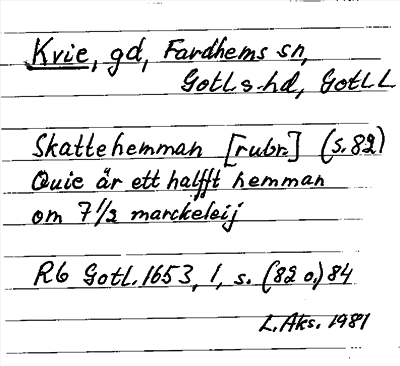 Kvie, gd, Fardhems sn,
Gotl s. hd, Gotl L
Skattehemman [rubr.] (s. 82)
Quie är ett halfft hemman
om 7 1/2 marckeleij
R6 Gotl. 1653, 1, s. (82 o.) 84
L. Aks. 1981